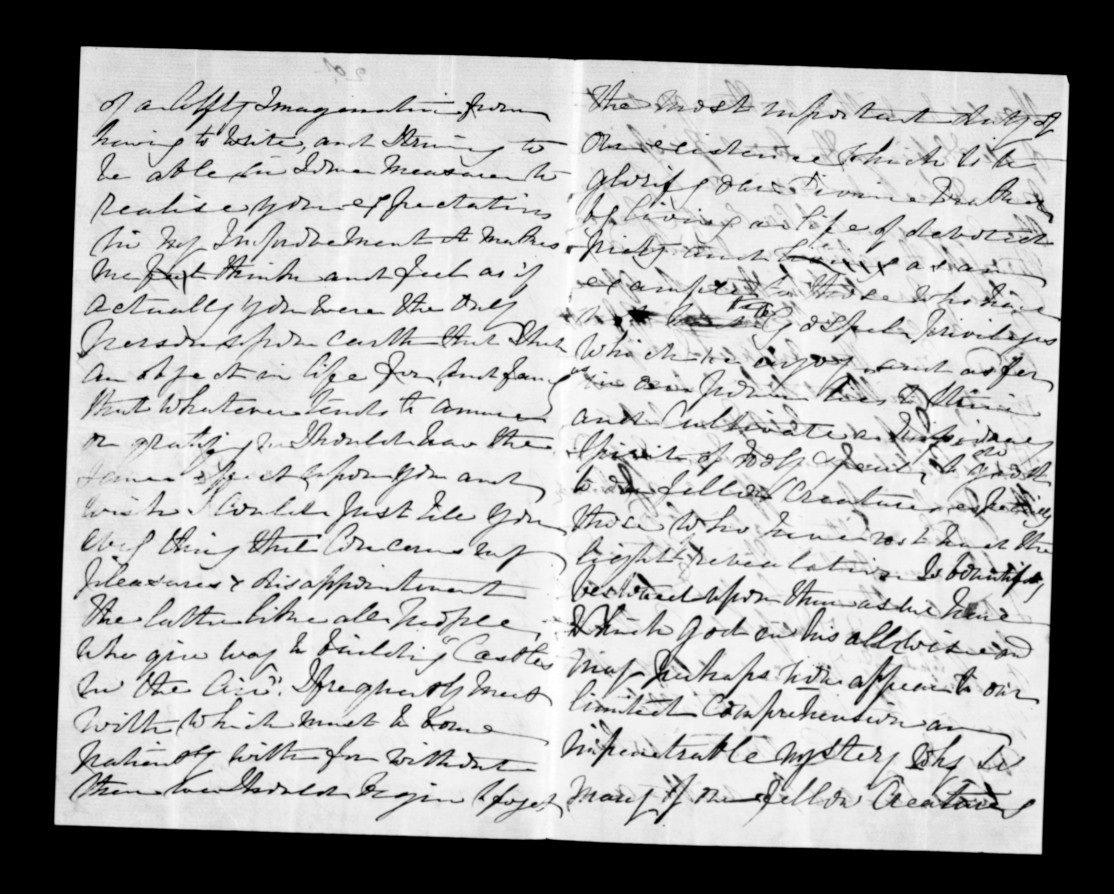 of a lofty Imagination from
having to write, and Striving to
be able in Some Measure to
realise your expectations
in my Improvement it makes
me think and feel as if
actually you were the only
person upon earth that I had
an object in life for, and fancy
that whatever tends to amuse
or gratify me Should have the
same effect upon you and
wish I could just tell you
every thing that Concerns my
pleasures & disappointment
the latter like all people,
who give way to building "Castles
in the Air". I frequently meet
with which must be borne
patiently with for without
them we Should begin to forget
the most important duty of
our existence which is to be
glorify our Divine Father
by living a life of devoted
piety and as an
example to those who have
not the Gospel privileges
which we enjoy, and as far
as in our power lies to Strive
and Cultivate a
Spirit of Holy to do good
to our fellow Creatures especially
those who have not had the
light of revelation So bountifully
bestowed upon them as we have
Which God in his all wise end
may perhaps now appear to our
limited Comprehension an
impenetrable mystery why so
many of our fellow Creatures